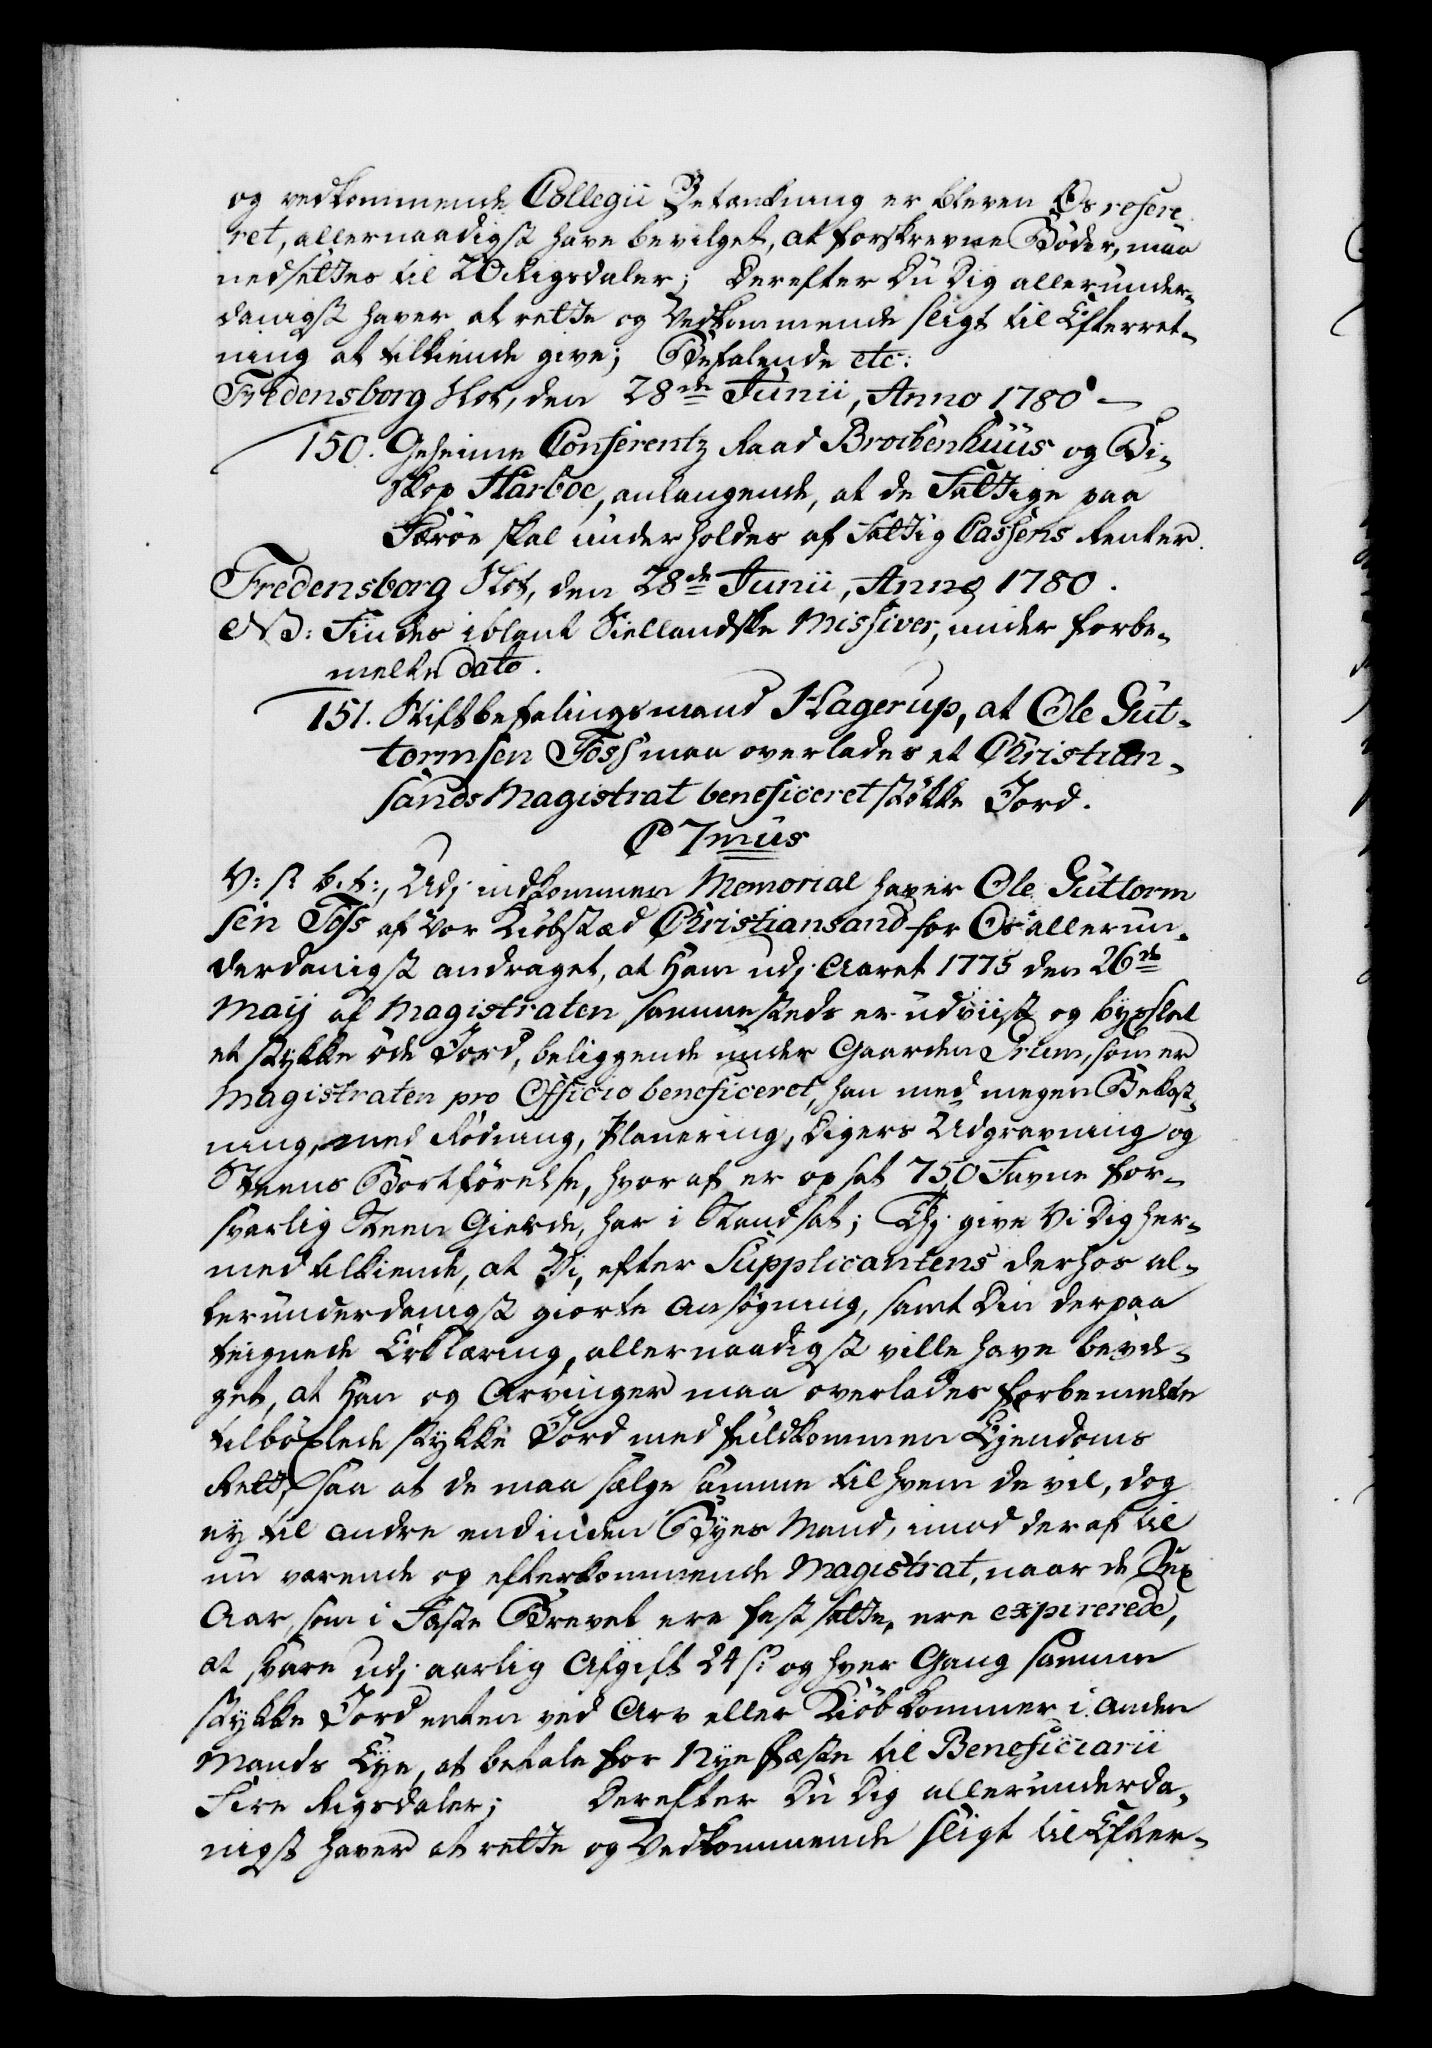 og vedkommende Collegii Betænkning er bleven Os refere
ret, allernaadigst have bevilget, at forskrevne Bøder, maa
nedsættes til 20 Rigsdaler; Derefter Du Dig allerunder-
danigst haver at rette og Vedkommende sligt til Efterret-
ning at tilkiende give; Befalende etc:
Fredensborg Slot, den 28de Junii, Anno 1780 —
150. Geheime Conferentz Raad Brockenhuus og Bi-
skop Harboe, anlangende, at de Fattige paa
Færøe skal underholdes af Fattig Cassens Renter.
Fredensborg Slot, den 28de Junii, Anno 1780.
NB: Findes iblant Siellandske Missiver, under forbe-
melte dato.
151. Stiftbefalingsmand Hagerup, at Ole Gut-
tormsen Foss maa overlades et Christian-
sands Magistrat beneficeret støkke Jord.
C 7mus
V: S: b. t:, Udj indkommen Memorial haver Ole Guttorm
sen Foss af Vor Kiøbstæd Christiansand for Os allerun-
derdanigst andraget, at Ham udj Aaret 1775 den 26de
Maij af Magistraten sammesteds er udviist og byxslet
et stykke øde Jord, beliggende under Gaarden Grim, som er
Magistraten pro Officio beneficeret, han med megen Bekost-
ning, med Rødning, Planering, Digers Udgravning og
Steens Bortførelse, hvoraf er opsat 750 Favne for-
svarlig Steen Gierde, har i Stand sat; Thj give Vi Dig her-
med tilkiende, at Vi, efter Supplicantens derhos al-
lerunderdanigst giorte Ansøgning, samt Din derpaa
teignede Erklæring, allernaadigst ville have bevil-
get, at Han og Arvinger maa overlades forbemelte
tilbøxlede stykke Jord med fuldkommen Ejendoms
Rett, saa at de maa sælge samme til hvem de vil, dog
ey til andre end inden Byes Mand, imod deraf til
nu værende og efterkommende Magistrat, naar de Sex
Aar, som i Fæste Brevet ere fast satte, ere expirerede,
at svare udj aarlig Afgift 24 s: og hver Gang samme
stykke Jord enten ved Arv eller Kiøb kommer i anden
Mands Eye, at betale for Nye Fæste til Beneficiarii
Fire Rigsdaler; Derefter Du Dig allerunderda-
nigst haver at rette og Vedkommende sligt til Efter-